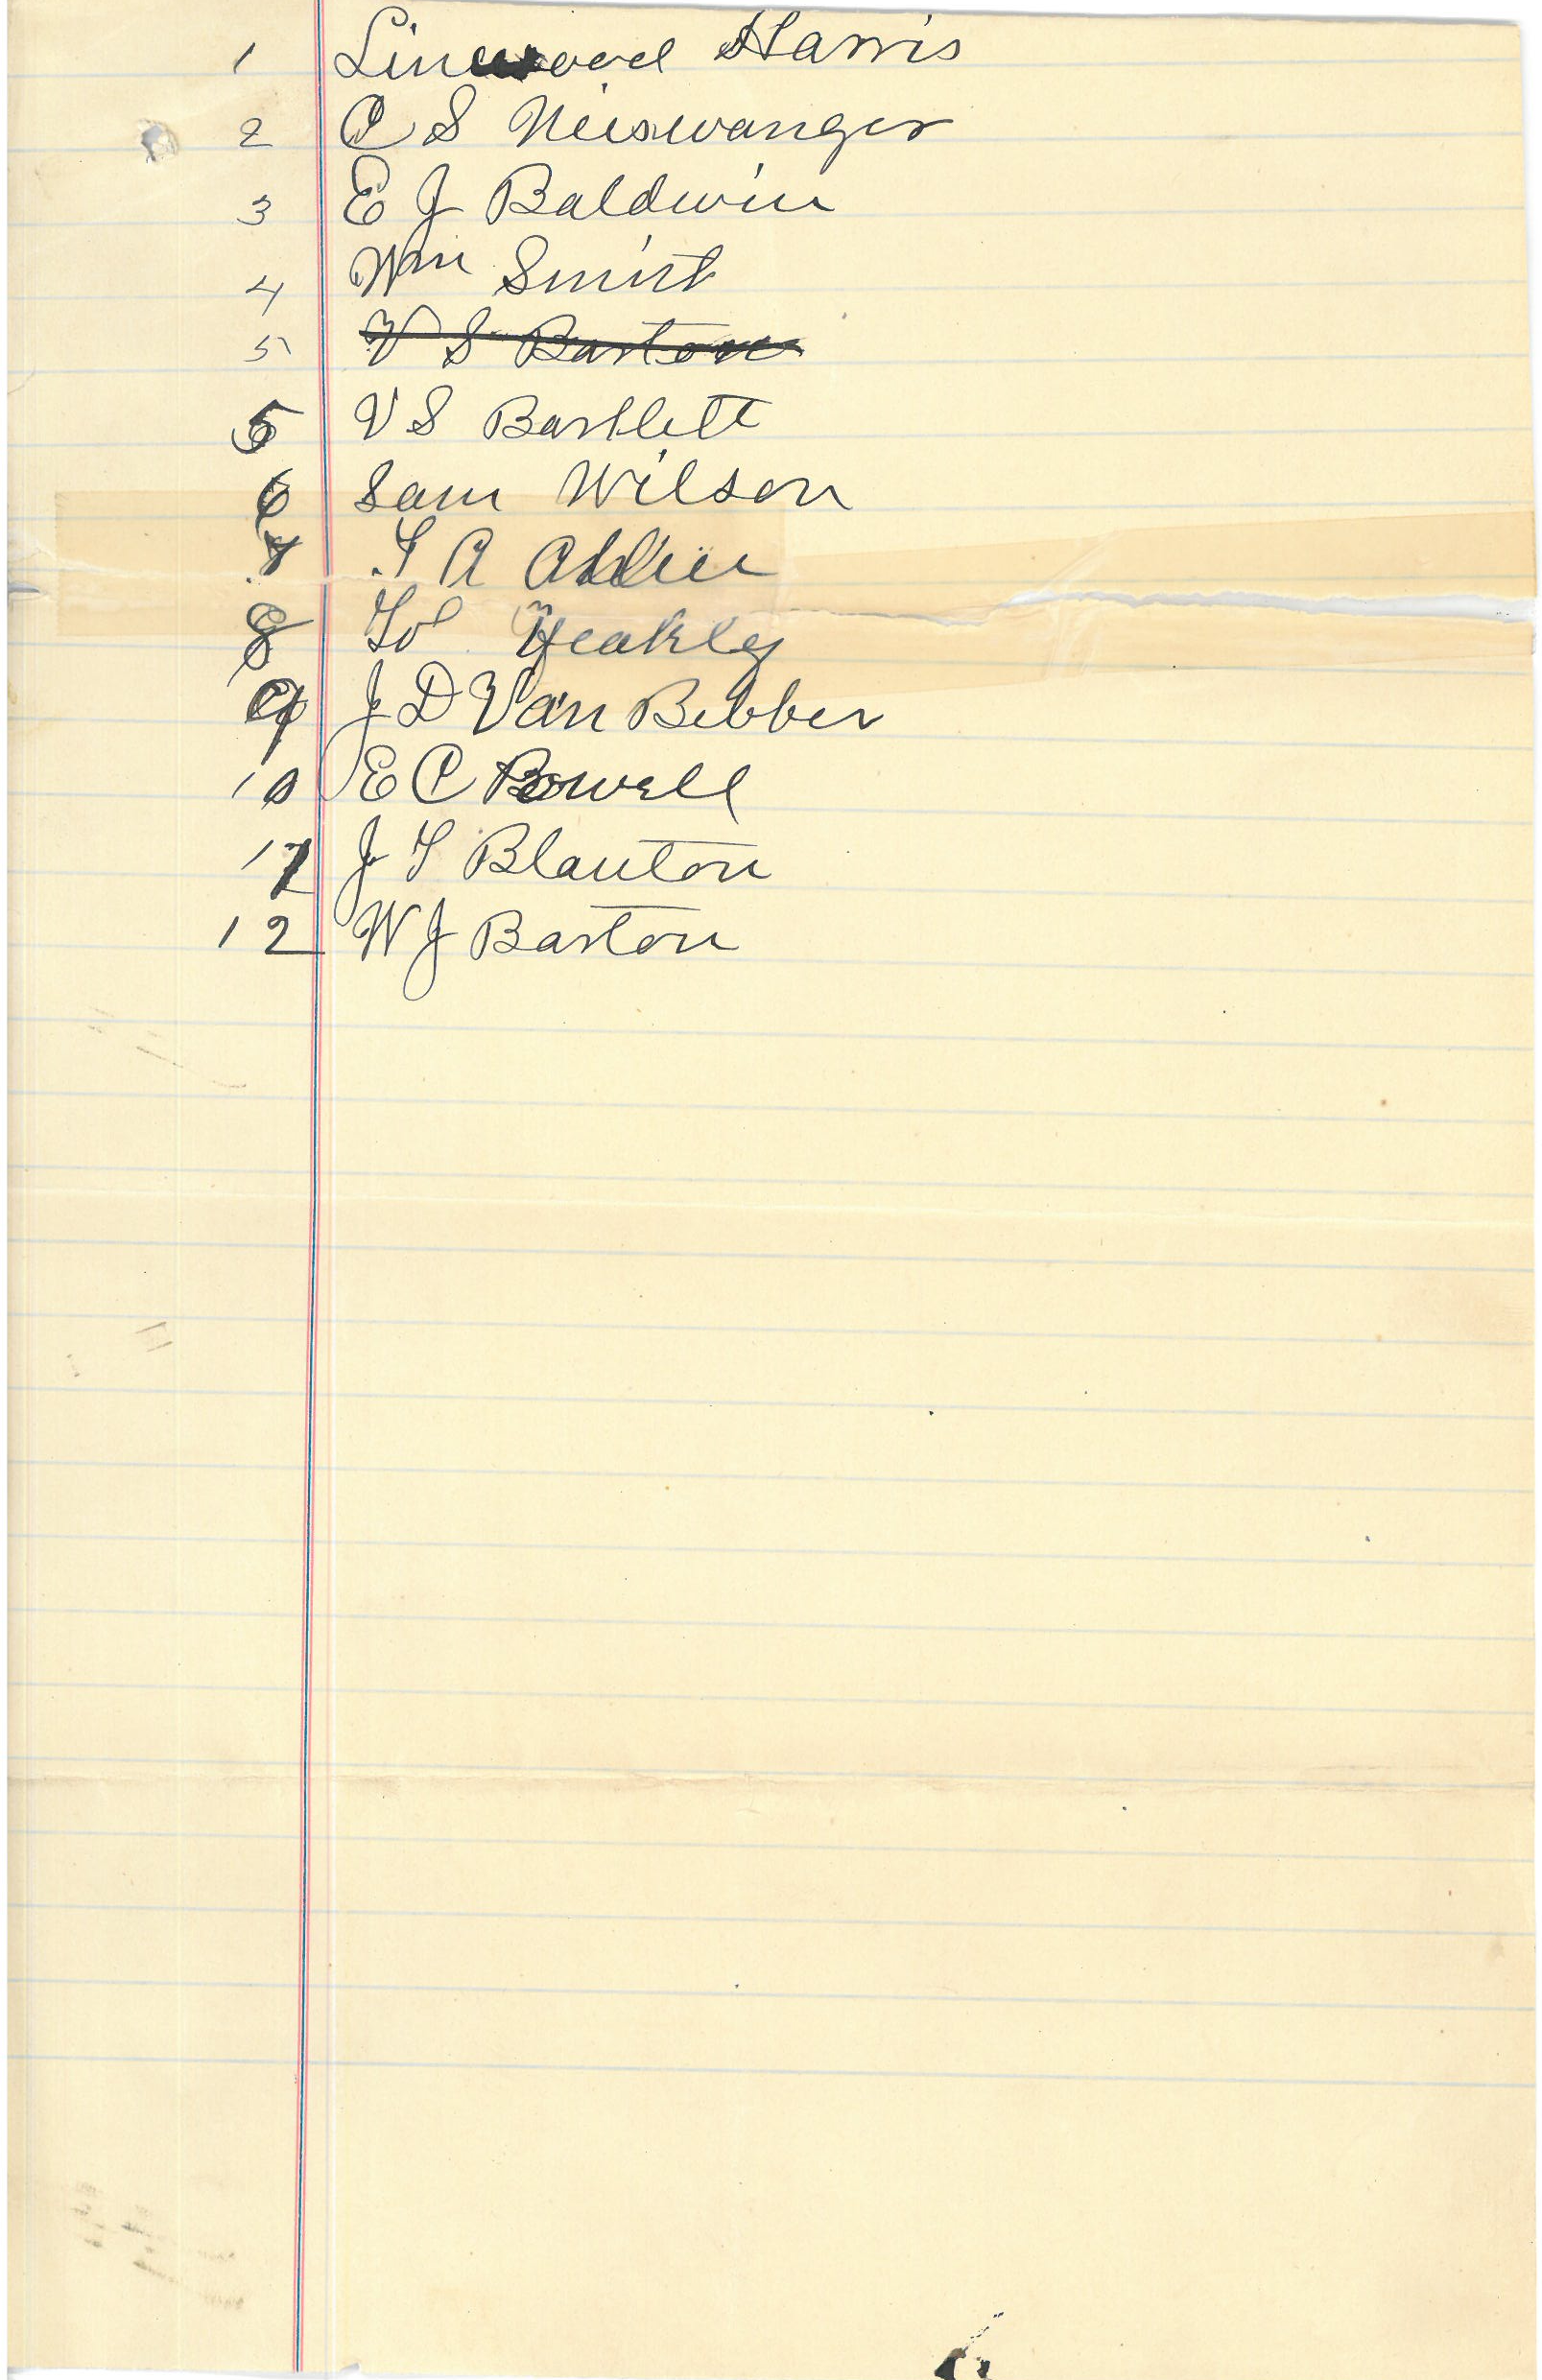 1 Linwood Harris
2 C S Neiswanger
3 E J Baldwin
4 Wm Smith
5 V S Barton
5 V S Bartlett
6 Sam Wilson
7 T A
8
9 J D Van Bebber
10 E C Powell
12 J T Blanton
12 W J Barton